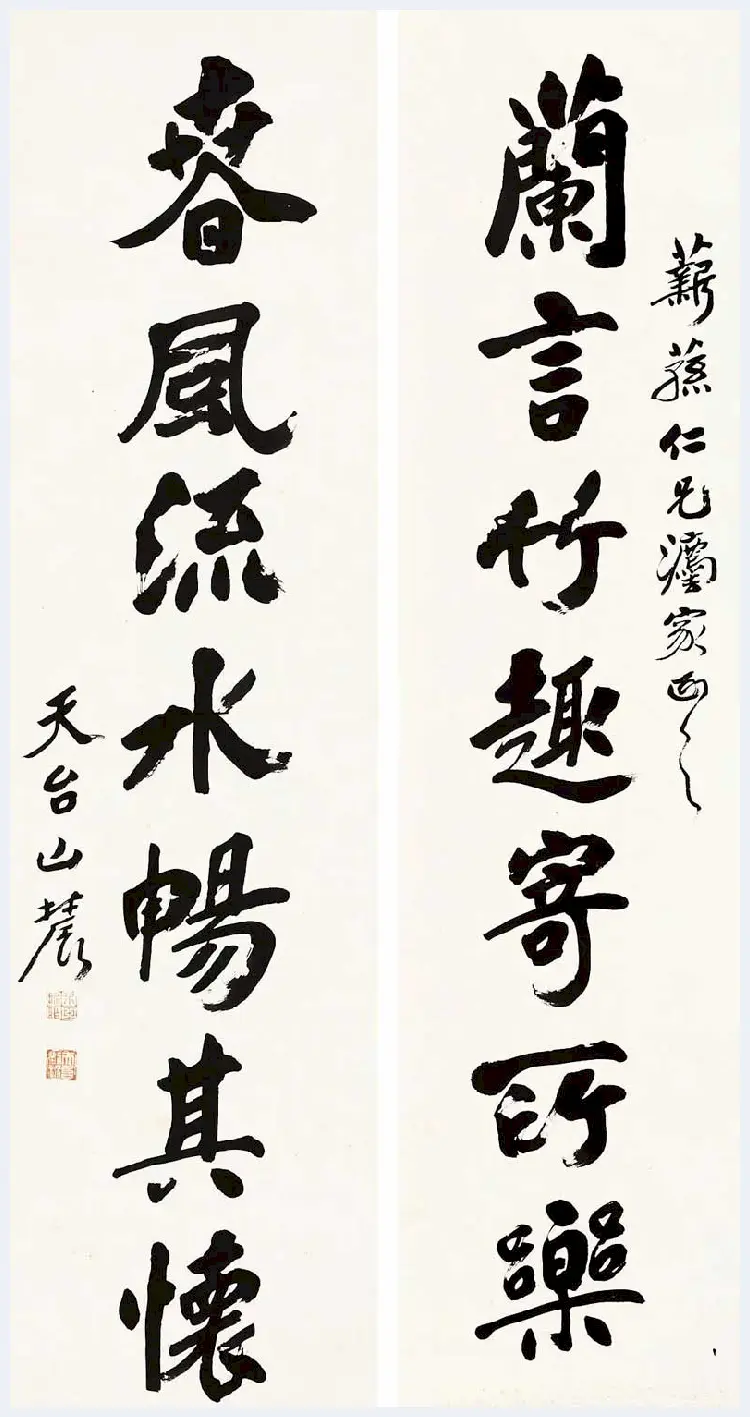 薪蓀仁兄灋家正之
蘭言竹趣寄所樂
春風流水暢其懷
天台山農